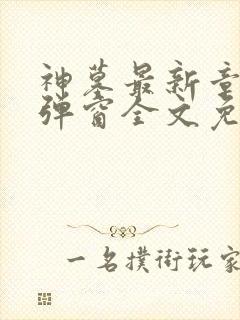 神墓最新章
弹窗全文免
一名撲街玩家